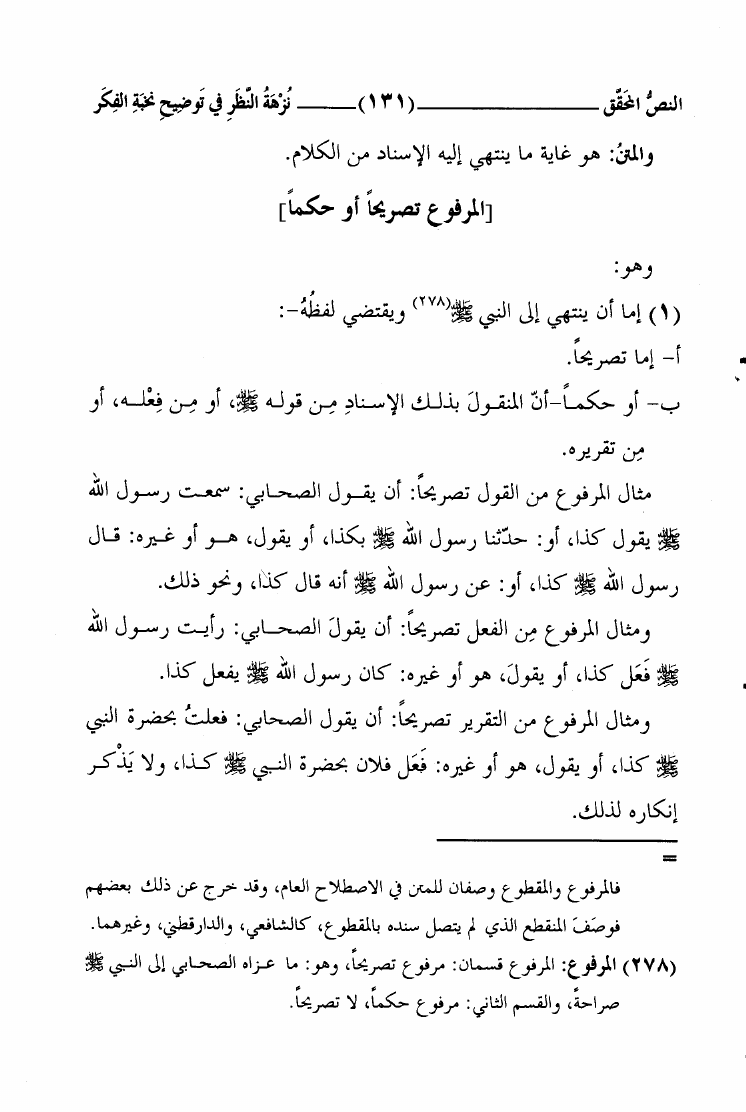 النصُّ المحَقَّق ــــــــــــــــــ (١٣١) ــــــ نُزْهَةُ النَّظَرِ في تَوضِيحِ نخبَةِ الفِكَر
والمتنُ: هو غاية ما ينتهي إليه الإسناد من الكلام.
[المرفوع تصريحاً أو حكماً]
وهو:
(١) إما أن ينتهي إلى النبي ﷺ(٢٧٨) ويقتضي لفظُهُ-:
أ- إما تصريحاً.
ب- أو حكماً-أنّ المنقولَ بذلك الإسنادِ مِن قوله ﷺ، أو مِن فِعْله، أو
مِن تقريره.
مثال المرفوع من القول تصريحاً: أن يقول الصحابي: سمعت رسول الله
ﷺ يقول كذا، أو: حدّثنا رسول الله ﷺ بكذا، أو يقول، هو أو غيره: قال
رسول الله ﷺ كذا، أو: عن رسول الله ﷺ أنه قال كذا، ونحو ذلك.
ومثال المرفوع مِن الفعل تصريحاً: أن يقولَ الصحابي: رأيت رسول الله
ﷺ فَعَل كذا، أو يقولَ، هو أو غيره: كان رسول الله ﷺ يفعل كذا.
ومثال المرفوع من التقرير تصريحاً: أن يقول الصحابي: فعلتُ بحضرة النبي
ﷺ كذا، أو يقول، هو أو غيره: فَعَل فلان بحضرة النبي ﷺ كذا، ولا يَذْكر
إنكاره لذلك.
=
فالمرفوع والمقطوع وصفان للمتن في الاصطلاح العام، وقد خرج عن ذلك بعضهم
فوصَفَ المنقطع الذي لم يتصل سنده بالمقطوع، كالشافعي، والدارقطني، وغيرهما.
(٢٧٨) المرفوع: المرفوع قسمان: مرفوع تصريحاً، وهو: ما عزاه الصحابي إلى النبي ﷺ
صراحةً، والقسم الثاني: مرفوع حكماً، لا تصريحاً.